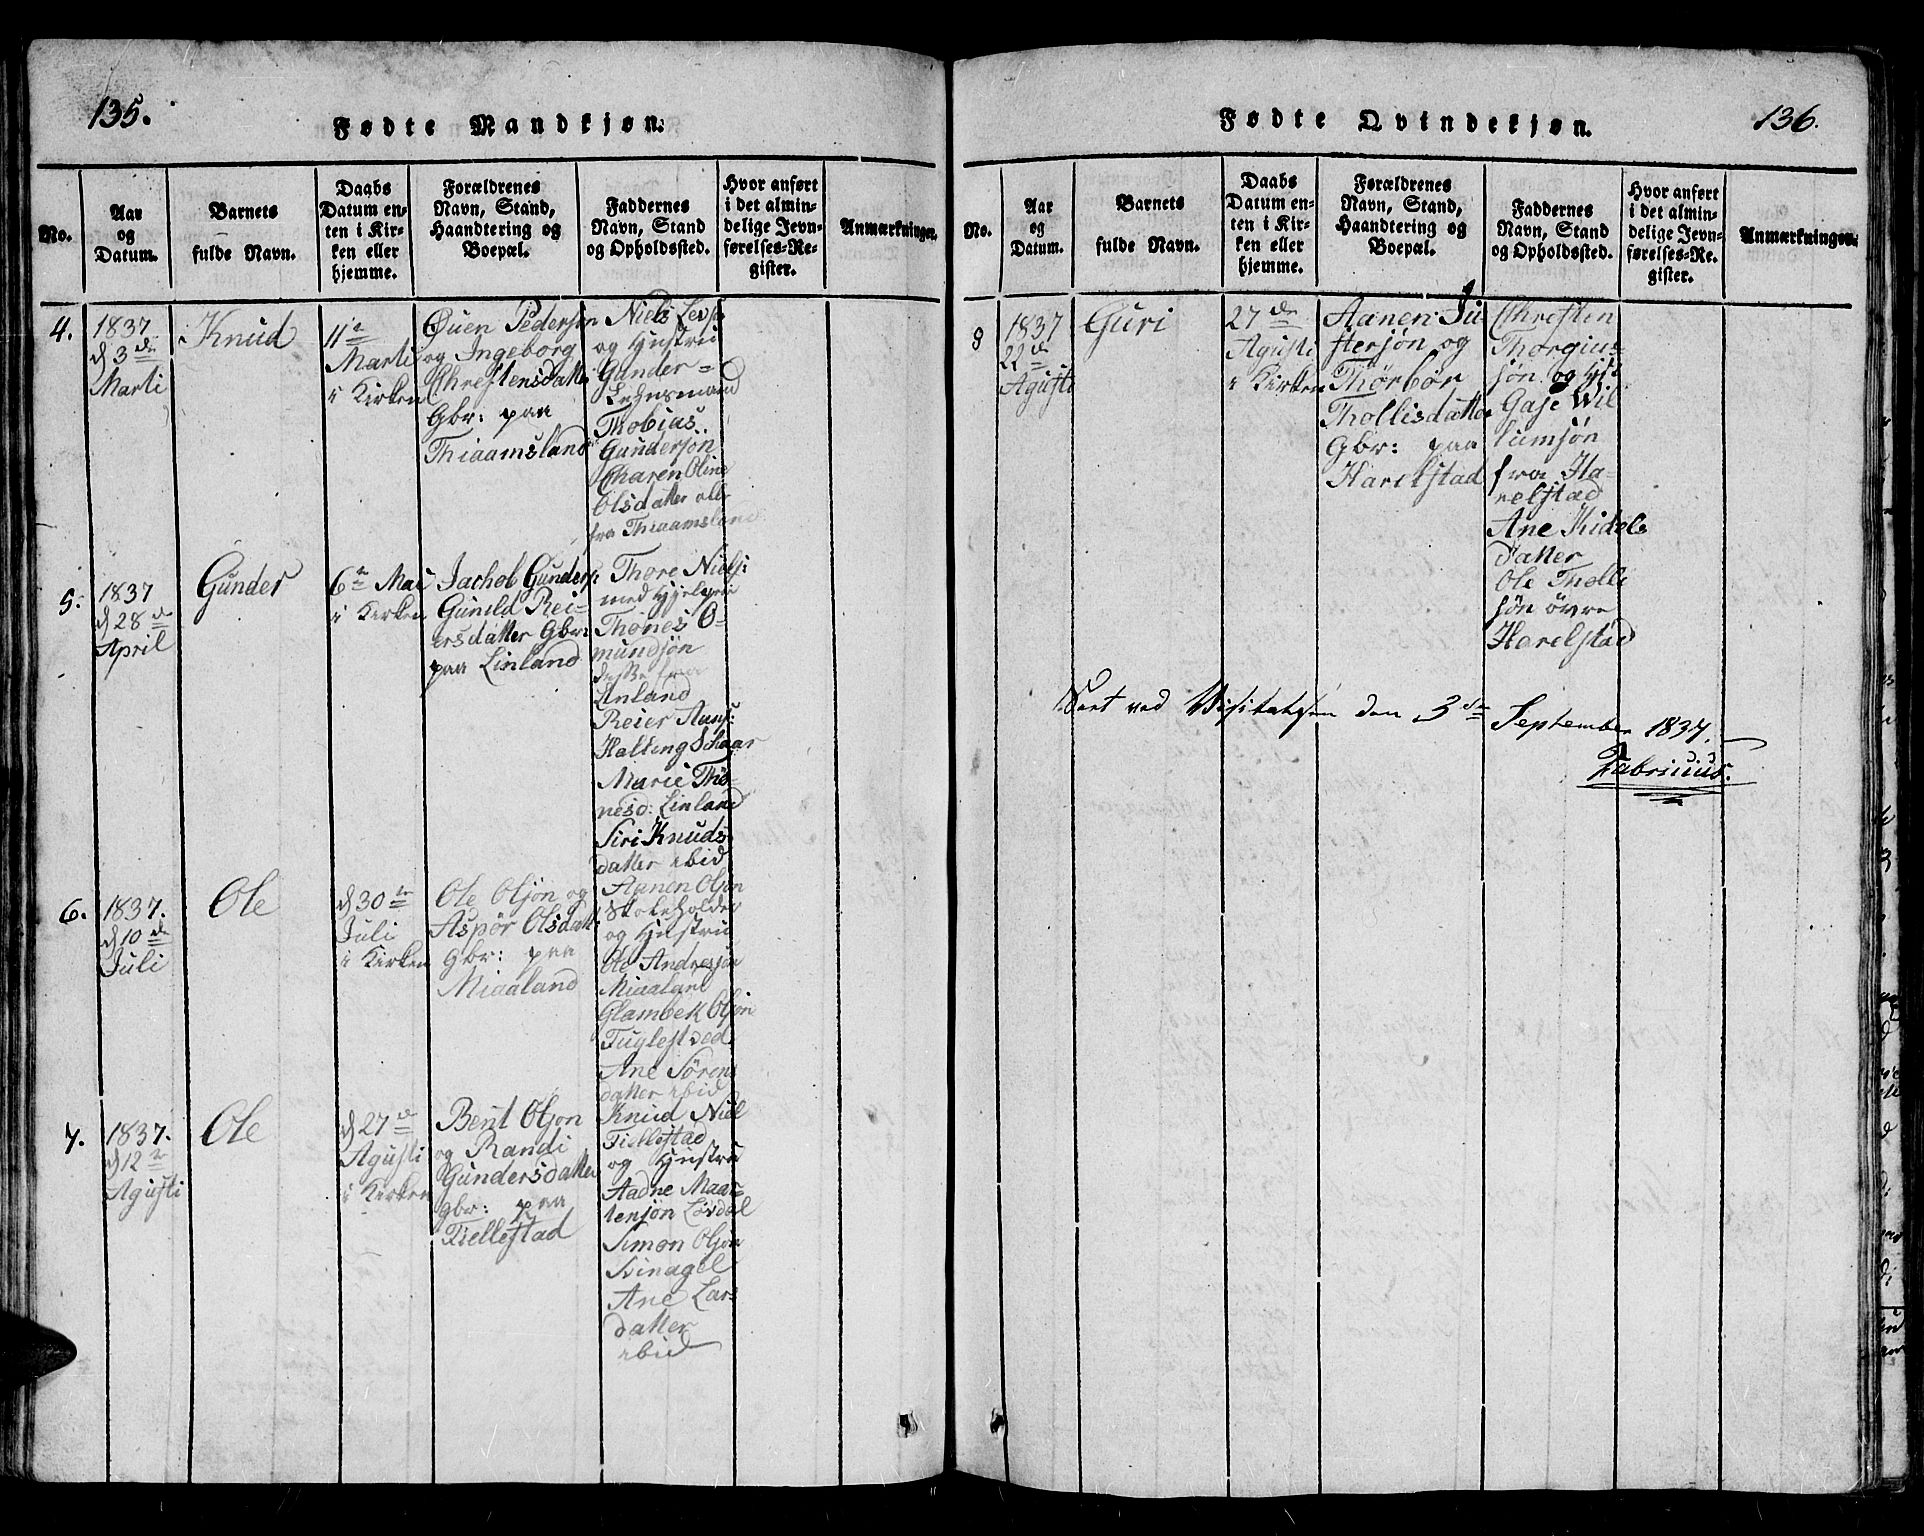 135.
Fødte Mandkjøn.
No.
Aar
og
Datum.
Barnets
fulde Navn.
Daabs
Datum en-
ten i Kir-
ken eller
hjemme.
Forældrenes
Navn, Stand,
Haandtering og
Boepæl.
Faddernes
Navn, Stand
og Opholdssted.
Hvor anført
i det almin-
delige Jevn-
førelses-Re-
gister.
Anmærkninger.
4.
1837
d 3 de
Marti
Knud
11te
Marti
i Kirken
Øuen Pedersøn
og Ingeborg
Chrestensdatter
Gbr: paa
Thiaamsland
Niels
og Hustrü
Gunder
Lehnsmand
Thobias
Gundersøn
Charen Oline
Olsdatter alle
fra Thiaamsland
5.
1837
d 28 de
April
Gunder
6te Mai
i Kirken
Jachob Gunders:
Gunild Rei-
ersdatter Gbr:
paa Linland
Thore Niels:
med
Thönes O-
mundsøn
disse fra
Linland
Reier Aans:
Halling Schaar
Marie Thö-
nesd: Linland
Siri Knuds
datter ibid
6.
1837.
d 10 de
Juli
Ole
d 30te
Juli
i Kirken
Ole Olsøn og
Aspør Olsdatt
Gbr: paa
Miaaland
Aanen Olsøn
Skoleholder
og Hustrü
Ole Andresøn
Miaaland
Glambek Olsøn
Fuglestved
Ane Sørens
datter ibid
7.
1837.
d 12te
Agusti
Ole
d 27de
Agusti
i Kirken
Bent Olsøn
og Randi
Gundersdatter
gbr: paa
Tiellestad
Knud Niel
Tiellestad
og Hustrü
Aadne Maar-
tensøn Løvdal
Simon Olsøn
Svinagel
Ane Lars
datter
ibid
136.
Fødte Qvindekjøn.
No.
Aar
og
Datum.
Barnets
fulde Navn.
Daabs
Datum en-
ten i Kir-
ken eller
hjemme.
Forældrenes
Navn, Stand,
Haandtering og
Boepæl.
Faddernes
Navn, Stand
og Opholdssted.
Hvor anført
i det almin-
delige Jevn-
førelses-Re-
gister.
Anmærkninger.
8
1837
22de
Agusti
Guri
27de
Agusti
i Kirken
Aanen Ju
stersøn og
Thørbør
Thollisdatter
Gbr: paa
Harelstad
Chresten
Thorgiu-
søn og
Gase Wil
lumsøn
fra Ha-
relstad
Ane Kidels
datter
Ole Tholli
søn øvre
Harelstad
Seet ved Visitatsen den 3die September 1837.
Fabricius.